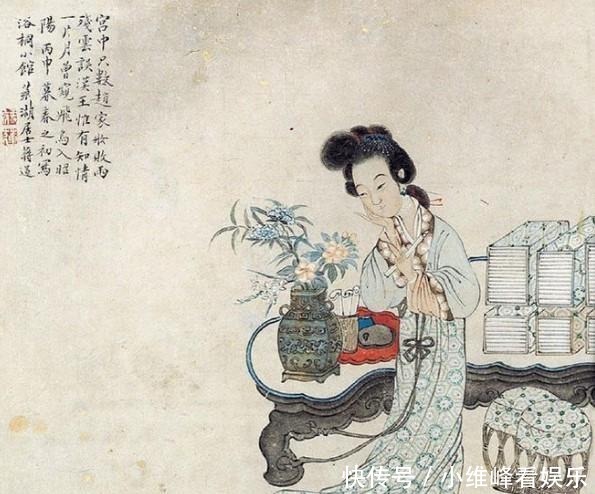 宮中只數趙家妝敗雨
殘雲誤漢王惟有知情
一片月曾窺飛鳥入昭
陽丙申暮春之初寫
浴桐小館湖居士蔣
快传号 / 小维峰看娱乐